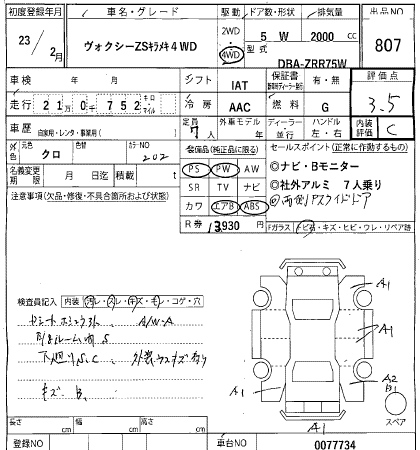 初度登録年月 車名・グレード 駆動 ドア数・形状 排気量 出品NO
23 / 2月 ヴォクシーZSキラメキ4WD 2WD 4WD 5 W 2000 cc 807
型式 DBA-ZRR75W
車検 年 月 シフト IAT 保証書 有・無 評価点
走行 21万0千752 キロ・マイル 冷房 AAC 燃料 G 3.5
車歴 自家用・レンタ・事業用( ) 定員 7人 外車モデル 年 ディーラー・並行 ハンドル 左・右 内装評価 C
外色 元色 クロ 色 カラーNO 202 装備品(純正品に限る) セールスポイント(正常に作動するもの)
名義変更期限 月 日迄 積載 t PS PW AW ◎ナビ・Bモニター
注意事項(欠品・修復・不具合箇所および状態) SR TV ナビ ◎社外アルミ 7人乗り
カワ エアB ABS ◎両側Pスライドドア
R券 13930円 Fガラス トビ石・キズ・ヒビ・ウレ・リペア跡
検査員記入 内装 汚レ・スレ・キズ・モレ・コゲ・穴
A1
A/W-A
A1
下廻りS、C 外装ウスキズ有り
A1 A2
キズ B1 B1
スペア
A1
長さ cm 幅 cm 高さ cm
登録NO 車台NO 0077734